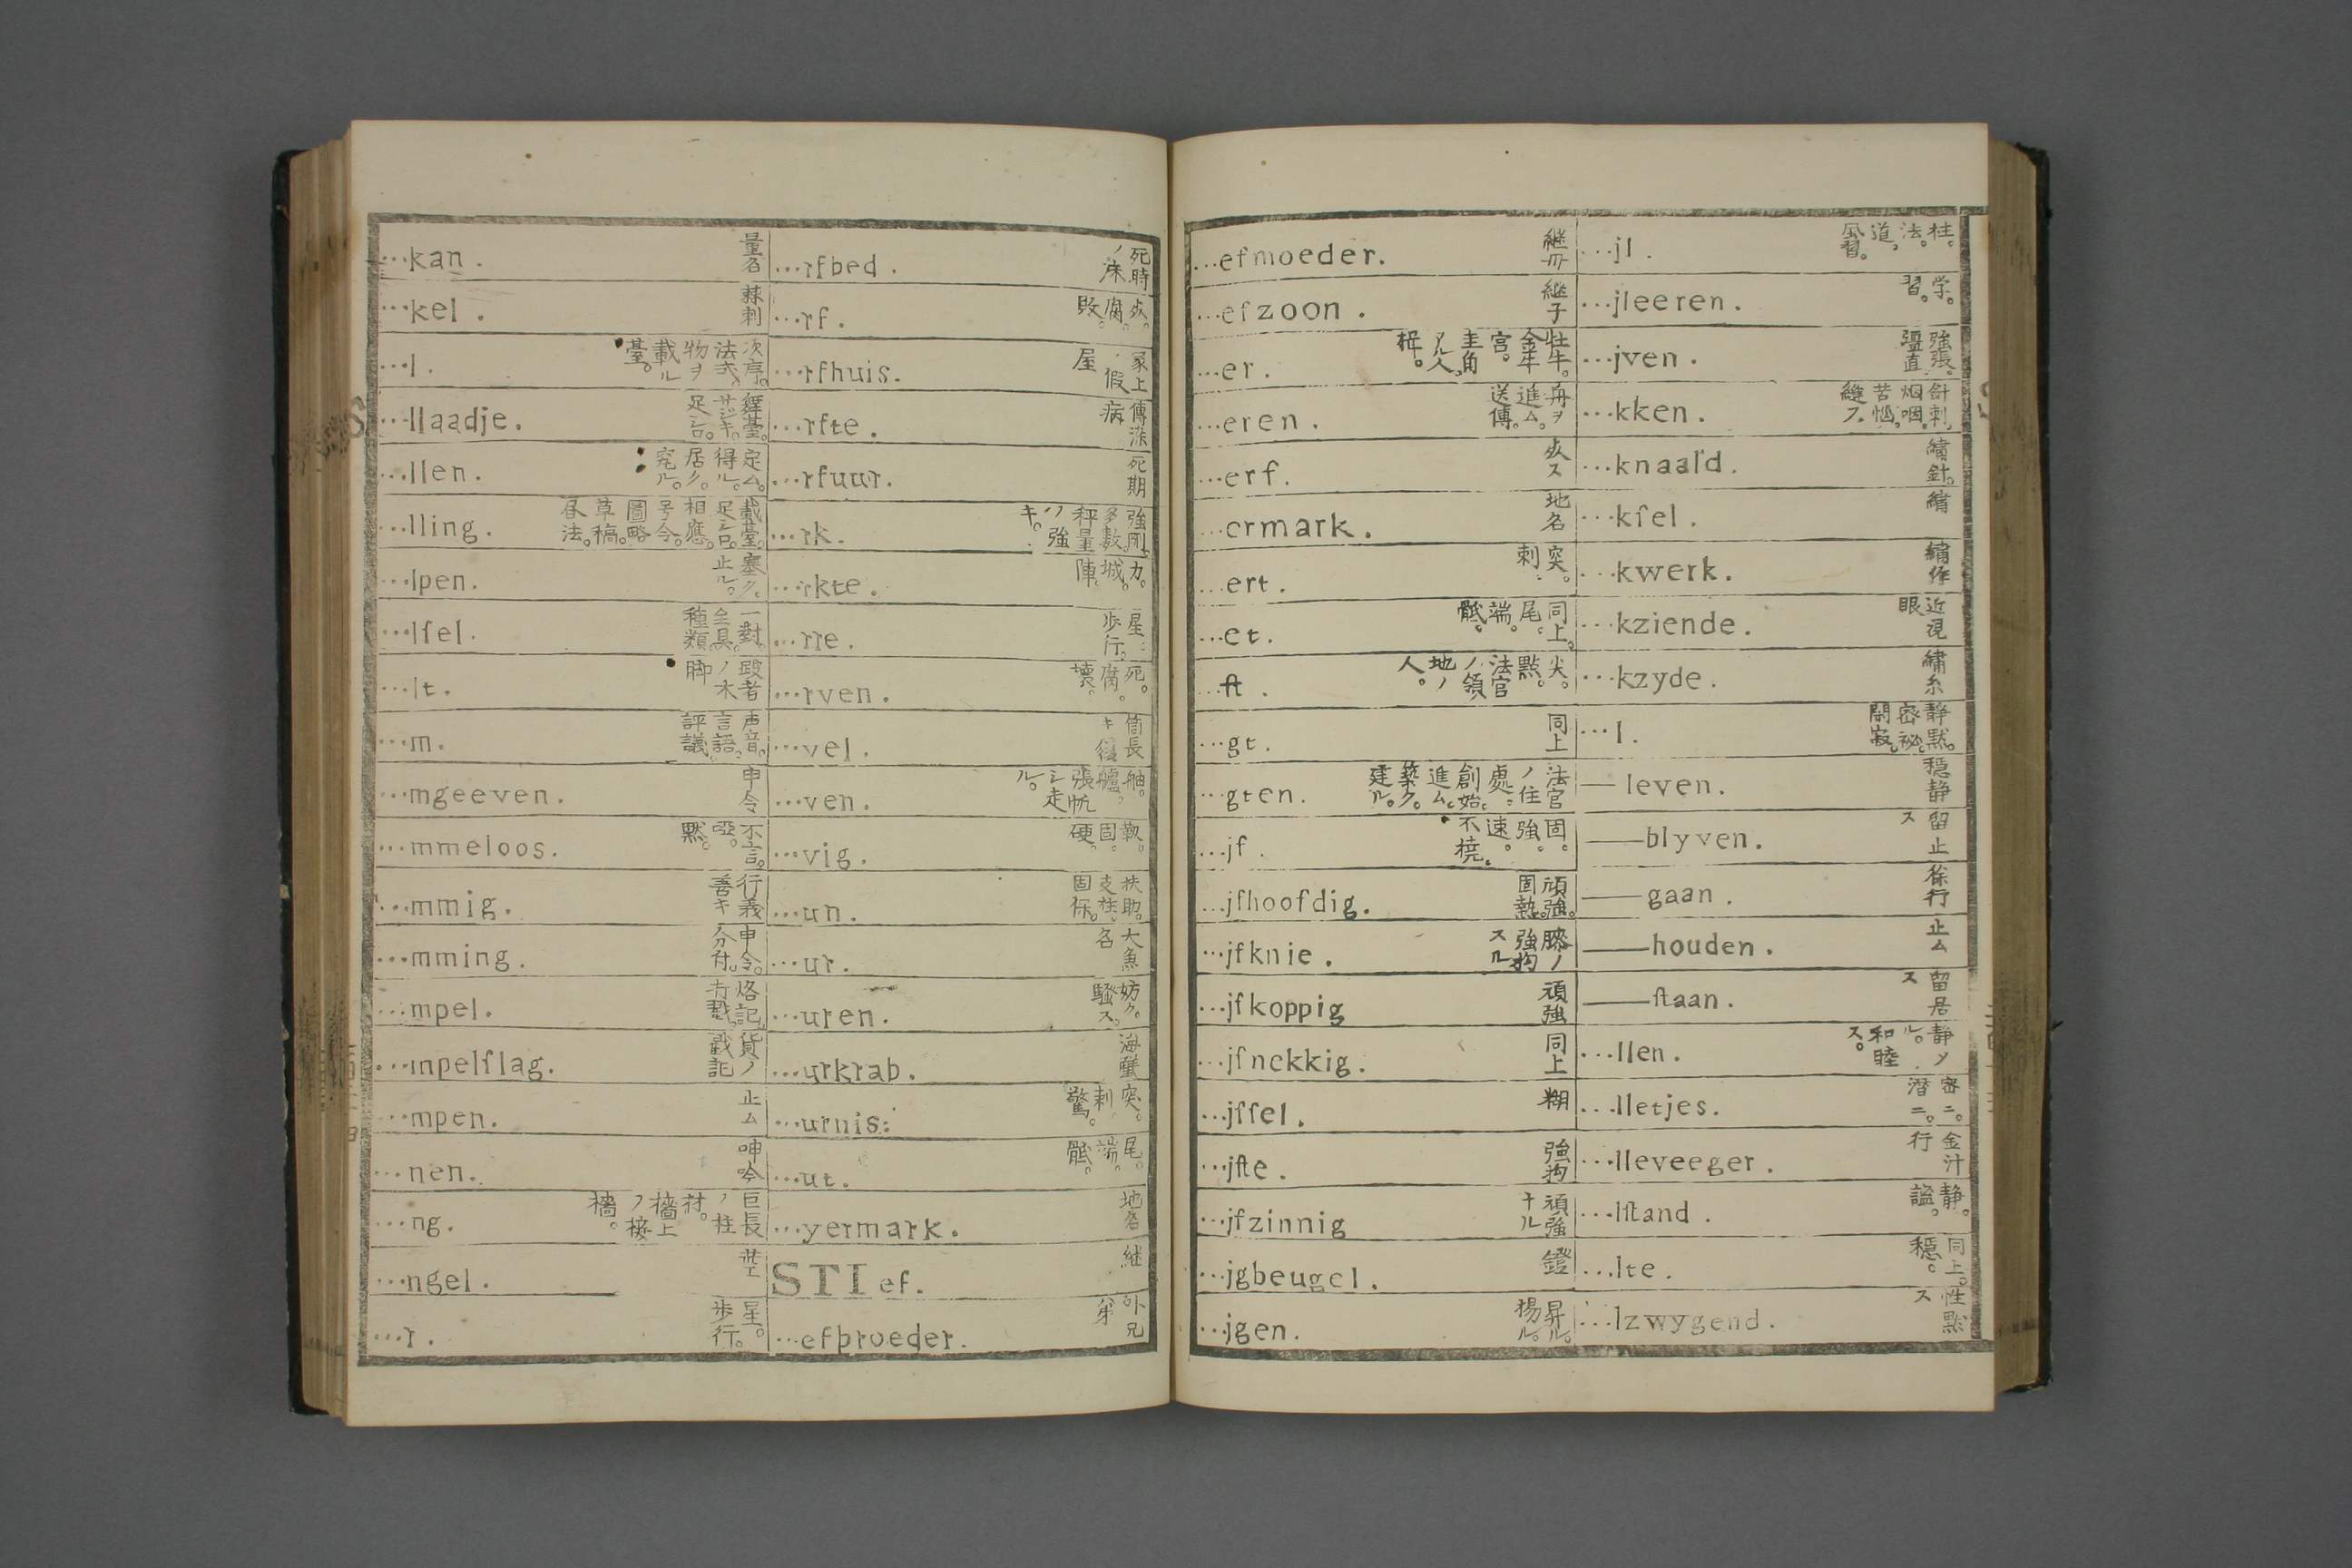 ...kan. 量名
...kel. 棘刺
...l. 次序。法式、物ヲ載ル臺。
...llaadje. 舞臺。サジキ。足シロ。
...llen. 定ム。得ル。居ク。宛ル。
...lling. 載臺。足シロ。相應。号令。圖略。草稿。居法。
...lpen. 塞ク。止ル。
...lſel. 一對。全具。種類。
...lt. 毀者ノ木脚
...m. 声音。言語。評議。
...mgeeven. 申令
...mmeloos. 不言。啞。黙。
...mmig. 行義善キ
...mming. 申令。分付。
...mpel. 烙記。
...mpelſlag. 貨ノ戳記
...mpen. 止ム
...nen. 呻吟
...ng. 巨長ノ柱材。檣上ノ接檣。
...ngel.
...r. 星。歩行。
...rfbed. 死時ノ床
...rf. 腐。敗。
...rfhuis. 冢上假屋
...rfte. 傳染病
...rfuur. 死期
...rk. 強剛。多數。秤量ノ強キ。
...rkte. 力。城。陣。
...rre. 星。歩行。
...rven. 死。腐。壊。
...vel. 筒長キ
...ven. 舳。艫。張帆シ走ル。
...vig. 固。硬。
...un. 扶助。支柱。固保。
...ur. 大魚名
...uren. 妨ク。騒ス。
...urkrab. 海
...urnis. 突。刺。驚。
...ut. 尾。端。骶。
...yermark. 地名
STIef. 継
...efbroeder. 外兄弟
...efmoeder. 継母
...efzoon. 継子
...er. 牡牛。金牛宮。圭角
...eren. 舟ヲ進ム。送傳。
...erf.
...ermark. 地名
...ert. 突。刺
...et. 同上。尾。端。骶。
...ſt. 尖。黙。法官ノ領地ノ人。
...gt. 同上
...gten. 法官ノ住處。創始。進ム。築ク。建ル。
...jf. 固。強。速。不撓。
...jfhoofdig. 頑強。固執。
...jfknie. 膝ノ強拘スル
...jfkoppig 頑強
...jfnekkig. 同上
...jfſel. 糊
...jfte. 強拘
...jfzinnig 頑強ナル
...jgbeugel. 鐙
...jgen. 昇ル。揚ル。
...jl. 柱。法。道。風習。
...jleeren. 学。習。
...jven. 強張。
...kken. 針刺。烟咽。苦悩。縫フ。
...knaald. 繍針。
...kſel. 繍
...kwerk. 繍作
...kziende. 近視眼
...kzyde. 繍糸
...l. 静黙。密秘。閑寂。
— leven. 穏静
——blyven. 留止ス
——gaan. 徐行
——houden. 止ム
——ſtaan. 留居ス
...llen. 静ヲル。和睦ス。
...lletjes. 密ニ。潜ニ。
...lleveeger. 金汁行
...lſtand. 静。謐。
...lte. 同上。穏。
...lzwygend. 性黙ス